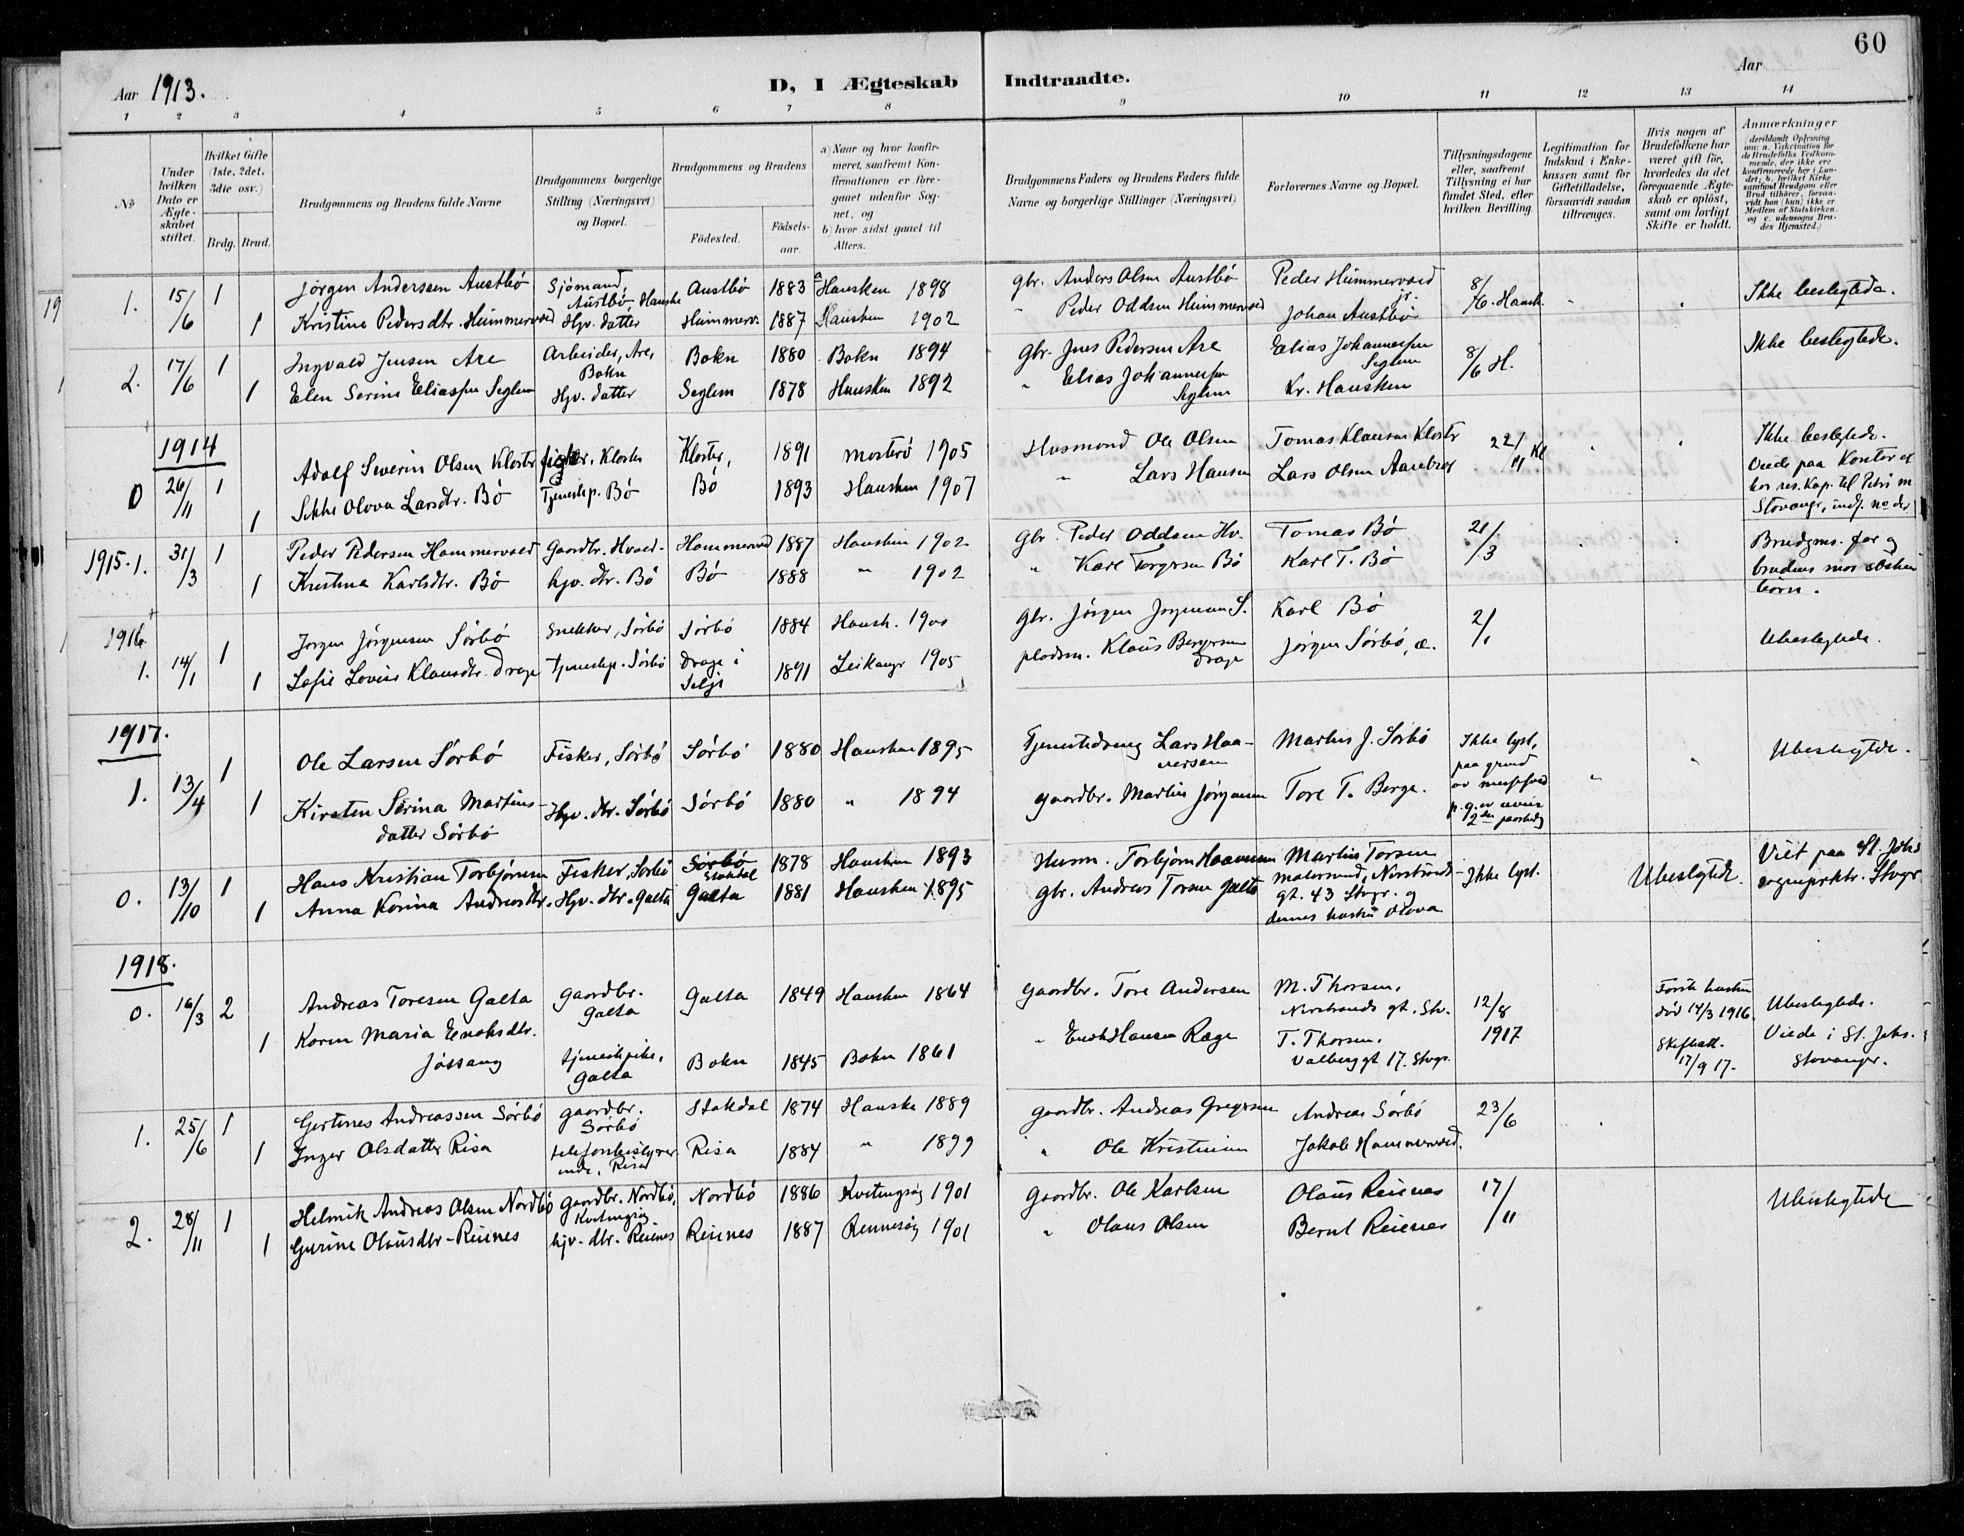 60
Aar 1913.
D, I Ægteskab Indtraadte.
Aar
1 2 3 4 5 6 7 8 9 10 11 12 13 14
No
Under hvilken Dato er Ægteskabet stiftet.
Hvilket Gifte (1ste, 2det, 3die osv.)
Brdg. Brud.
Brudgommens og Brudens fulde Navne
Brudgommens borgerlige Stilling (Næringsvei) og Bopæl.
Brudgommens og Brudens
Födested.
Födsels-aar.
a) Naar og hvor konfirmeret, saafremt Konfirmationen er foregaaet udenfor Sognet, og
b) hvor sidst gaaet til Alters.
Brudgommens Faders og Brudens Faders fulde Navne og borgerlige Stillinger (Næringsvei)
Forlovernes Navne og Bopæl.
Tillysningsdagene eller, saafremt Tillysning ei har fundet Sted, efter hvilken Bevilling.
Legitimation for Indskud i Enkekassen samt for Giftetilladelse, forsaavidt saadan tiltrænges.
Hvis nogen af Brudefolkene har været gift för, hvorledes da det foregaaende Ægteskab er oplöst, samt om lovligt Skifte er holdt.
Anmærkninger (deriblandt Oplysning om: a. Vakcination for de Brudefolks Vedkommende, der ikke ere konfirmerede her i Landet; b. hvilket Kirkesamfund Brudgom eller Brud tilhörer, forsaavidt han (hun) ikke er Medlem af Statskirken, og c. udensogns Brudes Hjemsted.)
1. 15/6 1 Jörgen Anderssen Austbö Sjömand, Austbö Hauske Austbö 1883 a Hausken 1898 Gbr. Anders Olsen Austbö Peder Hummervoed jr. 8/6. Hausk. Ikke beslegtede.
1 Kristine Pedersdtr. Hummervoed Hjv. datter Hummerv. 1887 Hausken 1902 " Peder Oddsen Hummervoed Johan Austbö
2. 17/6 1 Ingvald Jensen Are Arbeider, Are, Bokn Bokn 1880 Bokn 1894 Gbr. Jens Pedersen Are Elias Johannessen Seglem 8/6 H. Ikke beslegtede.
1 Elen Serine Eliassen Seglem Hjv. datter Seglem 1878 Hausken 1892 " Elias Johannessen Seglem Kr. Hausken
1914
0 26/11 1 Adolf Severin Olsen Kloster fisker, Kloster Kloster, 1891 Mosterö 1905 Husmand Ole Olsen Tomas Klausen Kloster 22/11 Kl Ikke beslegtede.
1 Sikke Olova Larsdtr. Bö Tjenestep. Bö Bö 1893 Hausken 1907 " Lars Hansen Lars Olsen Aarebrot Viede paa Kontoret hos res. Kap. til Petri m Stavanger,
1915. 1. 31/3 1 Peder Pedersen Hammervoed Gaardbr. Hvoed Hammervoed 1887 Hausken 1902 Gbr. Peder Oddsen Hv. Tomas Bö 21/3 Brudgms. far og
1 Kristina Karlsdtr. Bö hjv. dtr. Bö Bö 1888 " 1902 " Karl Torgersen Bö Karl T. Bö brudens mor söskenbörn.
1916.
1. 14/1 1 Jörgen Jörgensen Sörbö Snekker, Sörbö Sörbö 1884 Hausk. 1900 Gbr. Jörgen Jörgensen S. Karl Bö 2/1 Ubeslegtede.
1 Sofie Lovise Klausdtr. Drage Tjenestep. Sörbö Drage i Selje 1891 Leikanger 1905 pladsm. Klaus Bergersen Drage Jörgen Sörbö, æ.
1917.
1. 13/4 1 Ole Larsen Sörbö Fisker, Sörbö Sörbö 1880 Hausken 1895 Tjenestedreng Lars Haaversen Martin J. Sörbö Ikke lyst, paa grund av messefald Ubeslegtede.
1 Kirsten Serina Martinsdatter Sörbö Hjv. dtr. Sörbö Sörbö 1880 " 1894 gaardbr. Martin Jörgensen Tore T. Berge. 2den paaskedag
0. 13/10 1 Hans Kristian Torbjörnsen Fisker, Sörbö Sörbö Stokdal 1878 Hausken 1893 Husm. Torbjörn Haaversen Martin Torsen malersvend, Nirstrands- Ikke lyst. Ubeslegtede. Viet paa St. Johs
1 Anna Korina Andreasdtr. Hjv. dtr. Galta Galta 1881 Hausken 1895 gbr. Andreas Torsen Galta gt. 43 Stvgr. og dennes hustru Olova sogneprktr. Stvgr
1918.
0. 16/3 2 Andreas Toresen Galta gaardbr. Galta Galta 1849 Hausken 1864 gaardbr. Tore Andersen M. Thorsen. Nirstrands gt. Stv. 12/8 1917 Förste hustru död 14/3 1916. Ubeslegtede.
1 Karen Maria Enoksdtr. Jössang tjenestepike, Galta Bokn 1845 Bokn 1861 " Enok Hansen Rage T. Thorsen. Valberggt 17. Stvgr. Skifteatt. 17/9 17. Viede i St. Johs. Stavanger.
1. 25/6 1 Gertines Andreassen Sörbö gaardbr. Sörbö Stokdal 1874 Hauske 1889 gaardbr. Andreas Gregersen Andreas Sörbö 23/6
1 Inger Olsdatter Risa telefonbestyrerinde, Risa Risa 1884 " 1899 " Ole Kristiansen Jakob Hammervoed.
2. 28/11 1 Helmik Andreas Olsen Nordbö gaardbr. Nordbö, Kvitingsöy Nordbö 1886 Kvitingsöy 1901 Gaardbr. Ole Karlsen Olaus Reienes 17/11 Ubeslegtede
1 Gurine Olausdtr. Reienes hjv. dtr. Reienes Reienes 1887 Rennesöy 1901 " Olaus Olsen Bernt Reienes